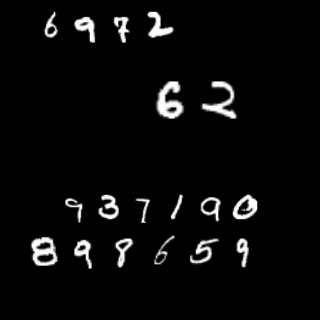 6972
62
937190
898659